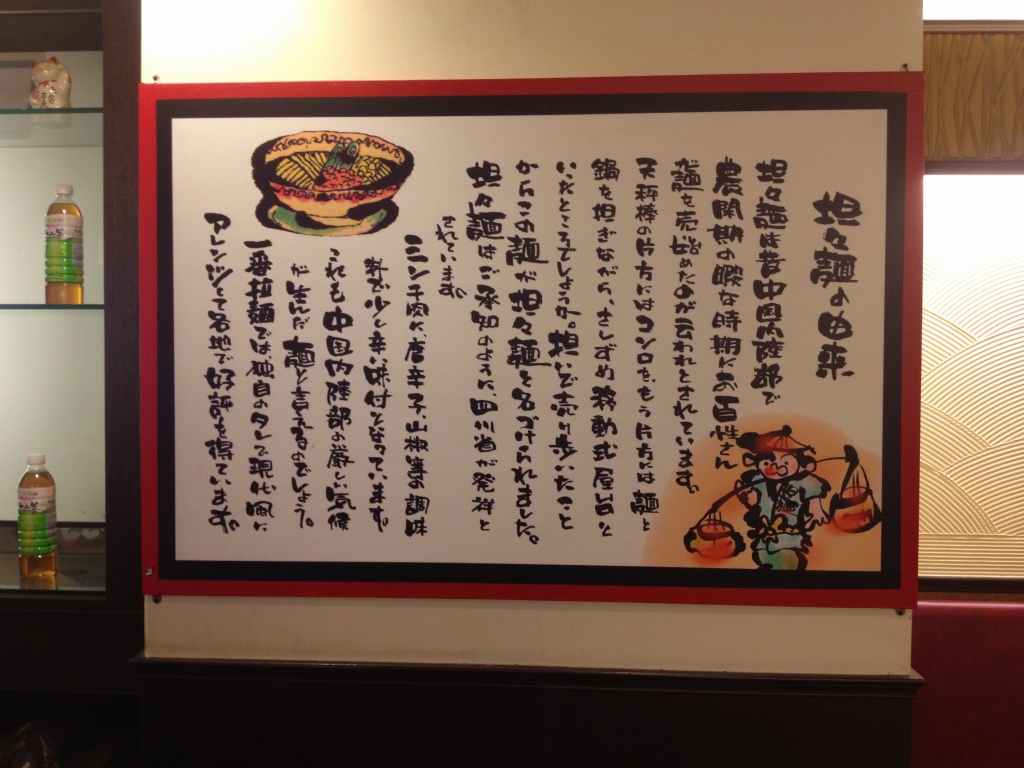 坦々麺の由来
坦々麺は昔中国内陸部で
農閑期の暇な時期にお百姓さん
麺を売り始めたのが云われとされています。
天秤棒の片方にはコンロをもう片方には麺と
鍋を担ぎながら、さしずめ移動式屋台と
いったところでしょうか。担いで売り歩いたこと
からこの麺が坦々麺と名づけられました。
坦々麺はご承知のように、四川省が発祥と
されています。
ミンチ肉に、唐辛子、山椒等の調味
料が少し辛い味付となっています。
これも中国内陸部の厳しい気候
が生んだ麺と言えるのでしょう。
一番拉麺では、独自のタレで現代風に
アレンジして各地で好評を得ています。